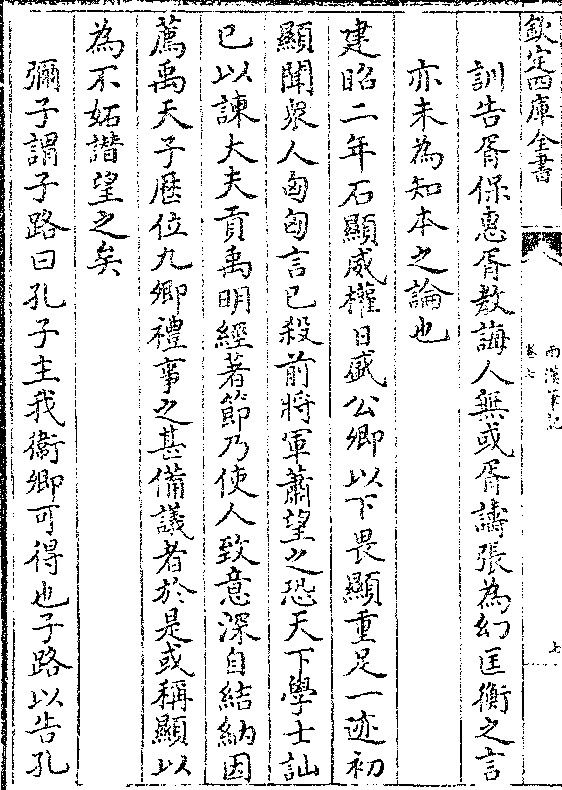 欽定四庫全書
兩漢筆記
卷七
七
訓告胥保惠胥教誨人無或胥譸張為幻匡衡之言
亦未為知本之論也
建昭二年石顯威權日盛公卿以下畏顯重足一迹初
顯聞衆人匈匈言已殺前將軍蕭望之恐天下學士訕
已以諫大夫貢禹明經著節乃使人致意深自結納因
薦禹天子歴位九卿禮事之甚備議者於是或稱顯以
為不妬譖望之矣
彌子謂子路曰孔子主我衞卿可得也子路以告孔